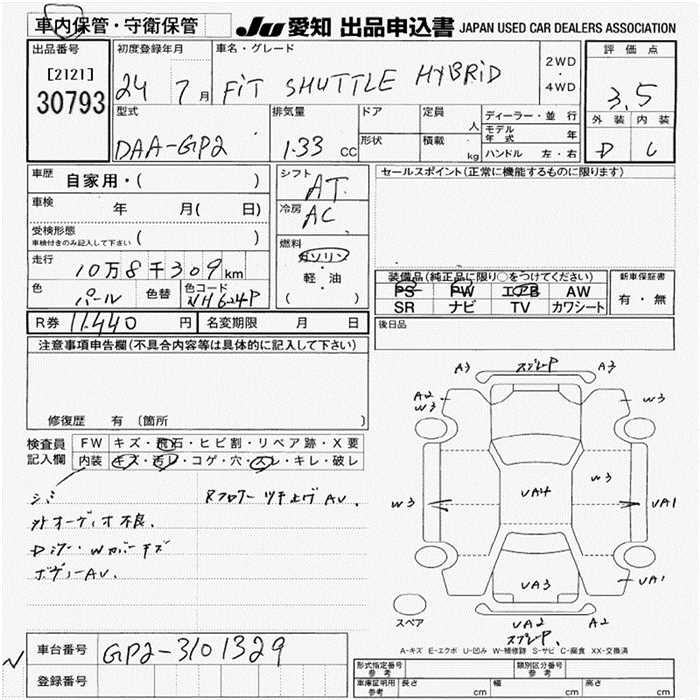 車内保管・守衛保管 JU 愛知 出品申込書 JAPAN USED CAR DEALERS ASSOCIATION
出品番号 初度登録年月 車名・グレード 2WD ・ 4WD 評価点
[2121]
30793 24 7月 FiT SHUTTLE HYBRiD 3.5
型式 排気量 ドア 定員 人 ディーラー・並行 外装 内装
DAA-GP2 1.33 CC 形状 積載 kg モデル年式 年 D C
ハンドル 左・右
車歴 自家用・( ) シフト AT セールスポイント(正常に機能するものに限ります)
車検 年 月( 日) 冷房 AC
受検形態
車検付きのみ記入して下さい ( )
燃料 ガソリン ・ 軽・油 ( )
走行 10万8千309km
色 パール 色替 色コード NH624P
装備品(純正品に限り○をつけてください) 新車保証書
PS PW エアB AW 有・無
SR ナビ TV カワシート
R券 11.440 円 名変期限 月 日 後日品
注意事項申告欄(不具合内容等は具体的に記入して下さい)
修復歴 有 〔箇所 〕
検査員記入欄 FW キズ・飛石・ヒビ割・リペア跡・X要
内装 キズ・汚レ・コゲ・穴・スレ・キレ・破レ
シミ
外オーディオ不良.
ボディーAV.
A3 スプレーP A3
A2 W3
W3
W3 VA4 W3 VA1
VA3 VA1
スペア VA2 A2
スプレーP.
A-キズ E-エクボ U-凹み W-補修跡 S-サビ C-腐食 XX-交換済
車台番号 GP2-3101329
登録番号
形式指定番号 参考 類別区分番号 参考
車庫証明用 参考 長さ cm 幅 cm 高さ cm